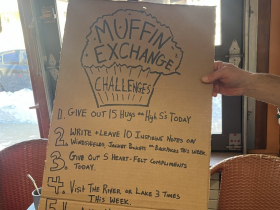 MUFFIN
EXCHANGE
CHALLENGES
1. GIVE OUT 15 HUGS OR HIGH 5'S TODAY
2. WRITE + LEAVE 10 INSPIRING NOTES ON
WINDSHIELDS, JACKET POCKETS OR BACKPACKS THIS WEEK.
3. GIVE OUT 5 HEART-FELT COMPLIMENTS
TODAY.
4. VISIT THE RIVER OR LAKE 3 TIMES
THIS WEEK.
5.